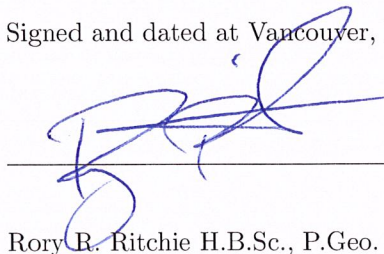 Signed and dated at Vancouver,
Rory R. Ritchie H.B.Sc., P.Geo.